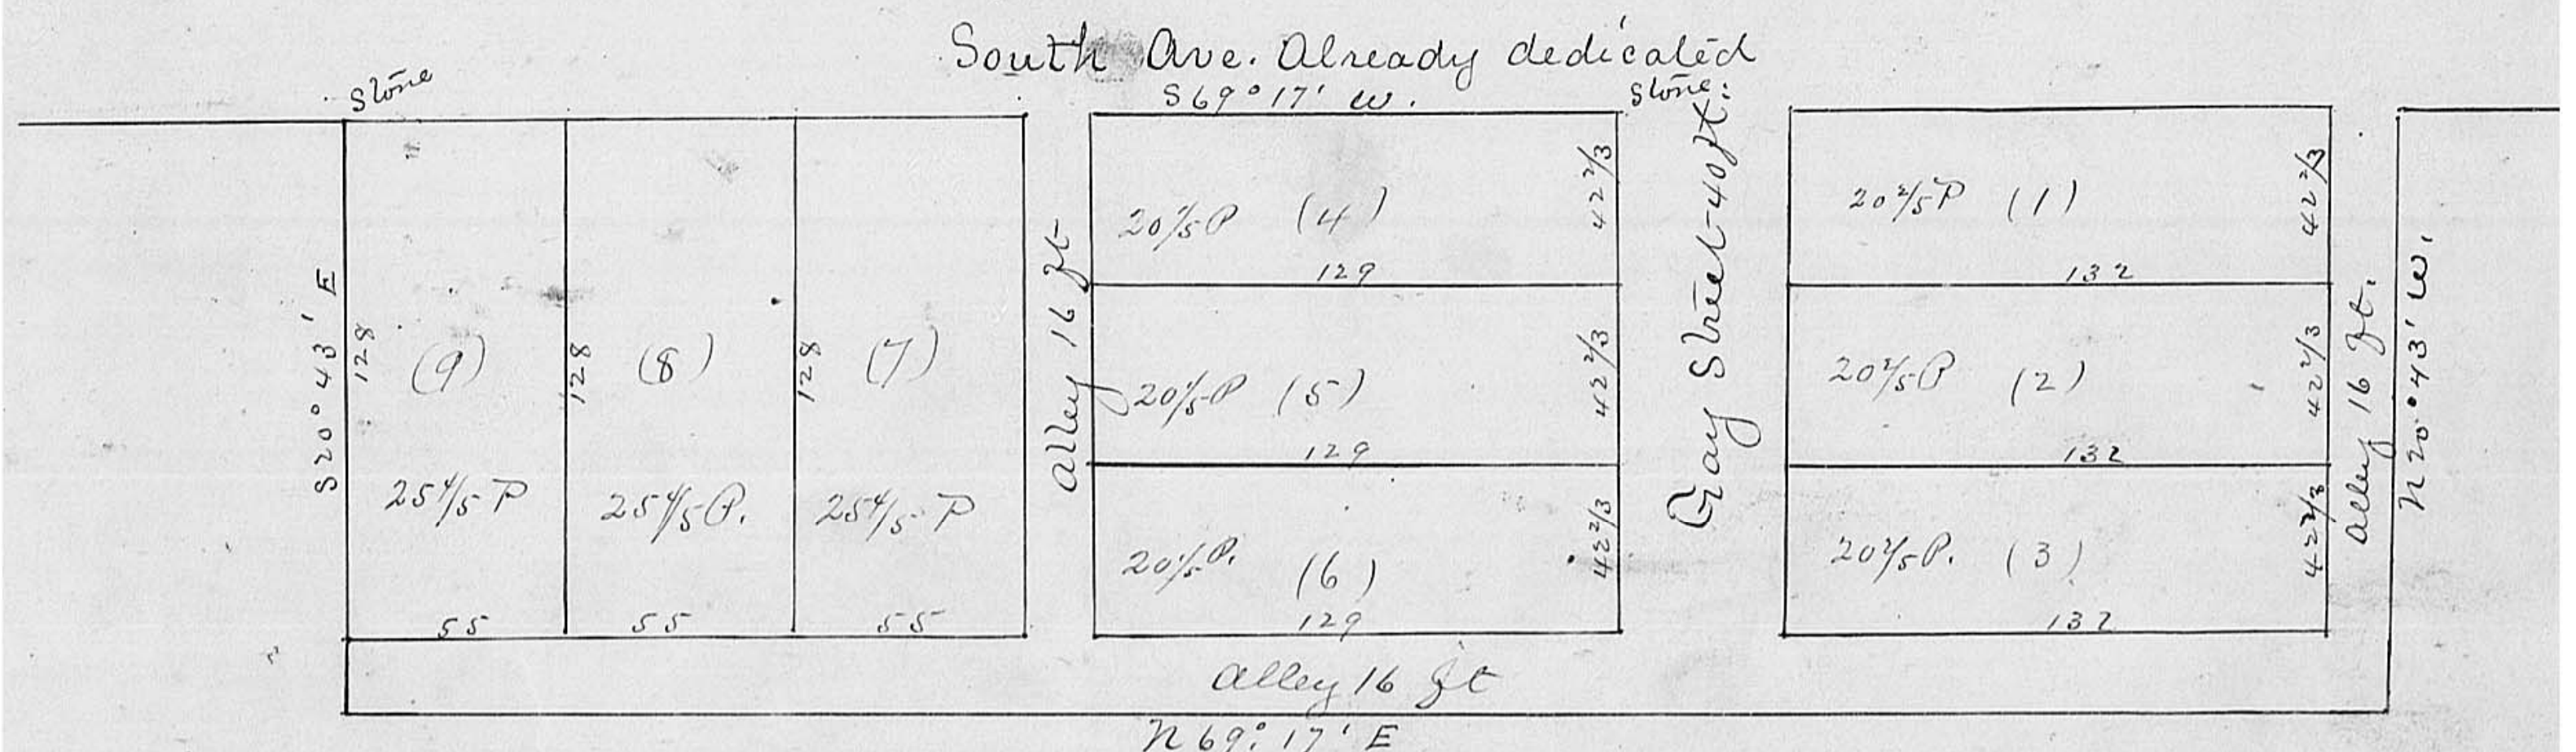 South Ave. Already dedicated
S 69° 17' W.
Stone
Stone:
S 20° 43' E
128
(9)
25 4/5 P
55
128
(8)
25 4/5 P.
55
128
(7)
25 4/5 P
55
Alley 16 ft
20 1/5 P (4)
42 2/3
129
20 1/5 P (5)
42 2/3
129
20 1/5 P. (6)
42 2/3
129
Gay Street 40 ft.
20 2/5 P (1)
42 2/3
132
20 2/5 P (2)
42 2/3
132
20 2/5 P. (3)
42 2/3
132
Alley 16 ft.
N 20° 43' W.
Alley 16 ft
N 69° 17' E